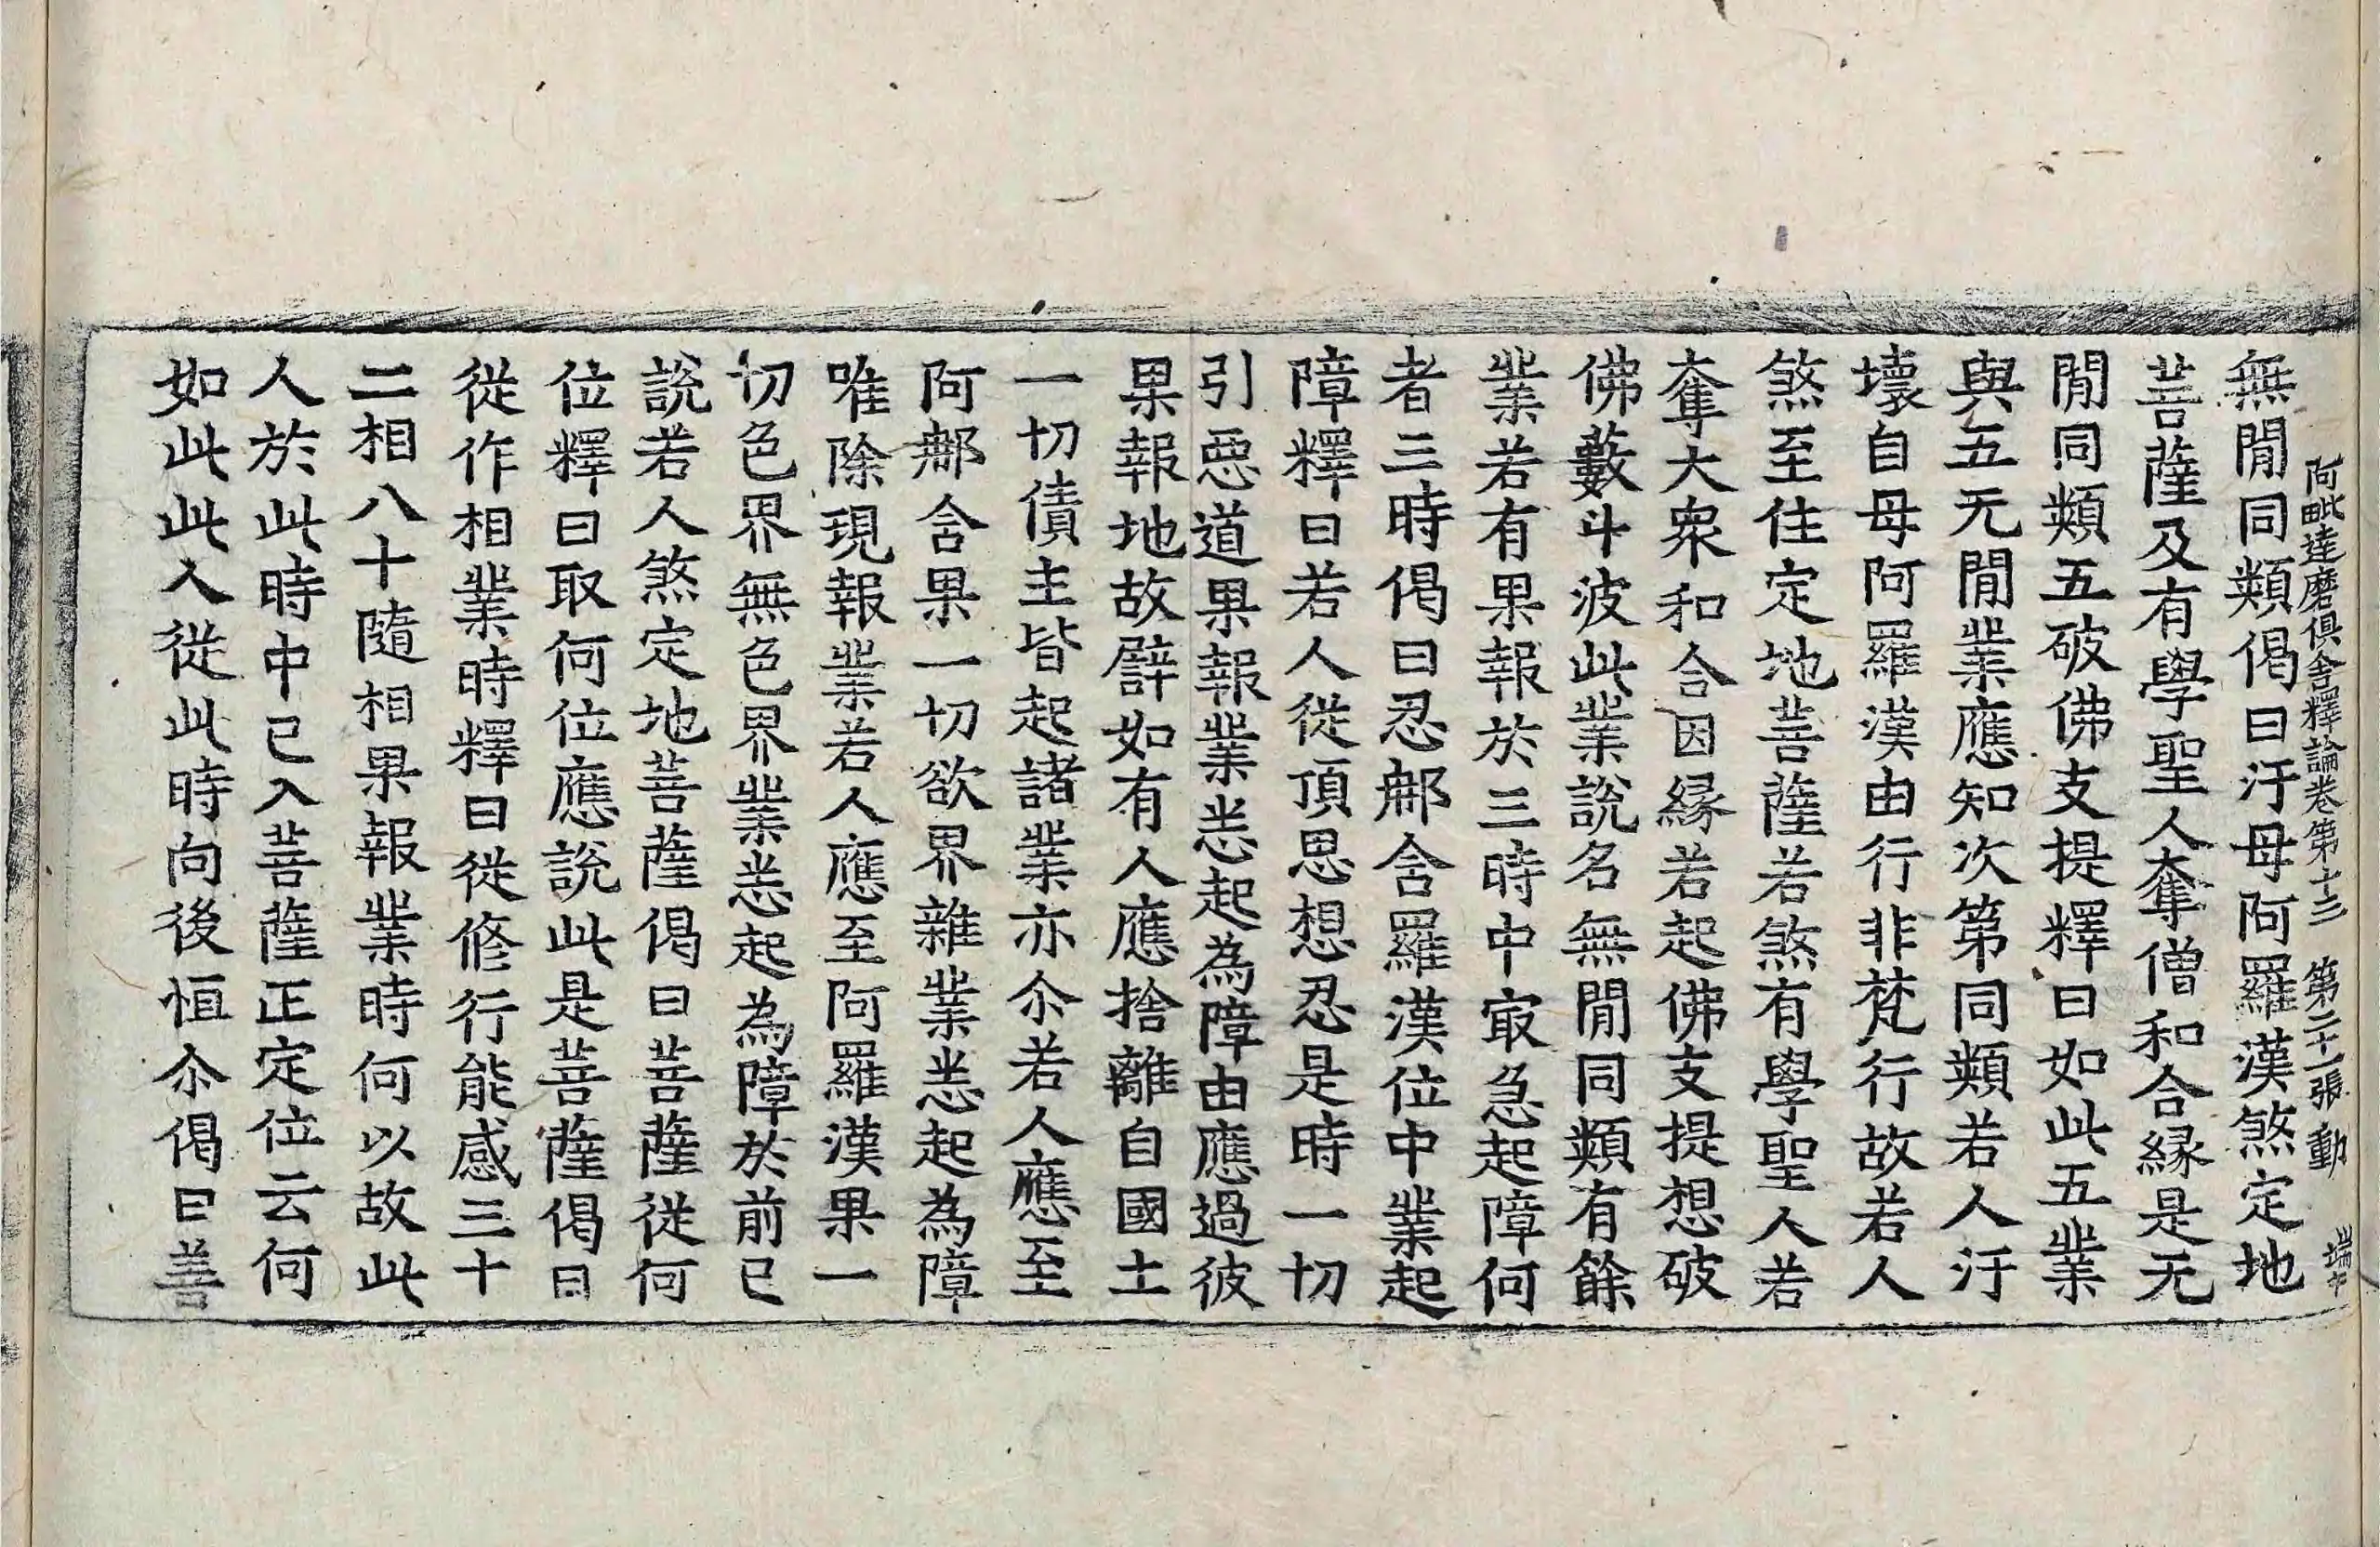 阿毗達磨俱舍釋論卷第十三　第二十一張　動　端午
無閒同類偈曰汙母阿羅漢煞定地
菩薩及有學聖人奪僧和合縁是无
閒同類五破佛支提釋曰如此五業
與五无閒業應知次第同類若人汙
壞自母阿羅漢由行非梵行故若人
煞至住定地菩薩若煞有學聖人若
奪大衆和合因縁若起佛支提想破
佛藪斗波此業說名無閒同類有餘
業若有果報於三時中㝡急起障何
者三時偈曰忍郍含羅漢位中業起
障釋曰若人從頂思想忍是時一切
引惡道果報業恙起為障由應過彼
果報地故譬如有人應捨離自國土
一切債主皆起諸業亦尒若人應至
阿郍含果一切欲界雜業恙起為障
唯除現報業若人應至阿羅漢果一
切色界無色界業恙起為障於前已
說若人煞定地菩薩偈曰菩薩從何
位釋曰取何位應說此是菩薩偈曰
從作相業時釋曰從修行能感三十
二相八十隨相果報業時何以故此
人於此時中已入菩薩正定位云何
如此此人從此時向後恒尒偈曰善